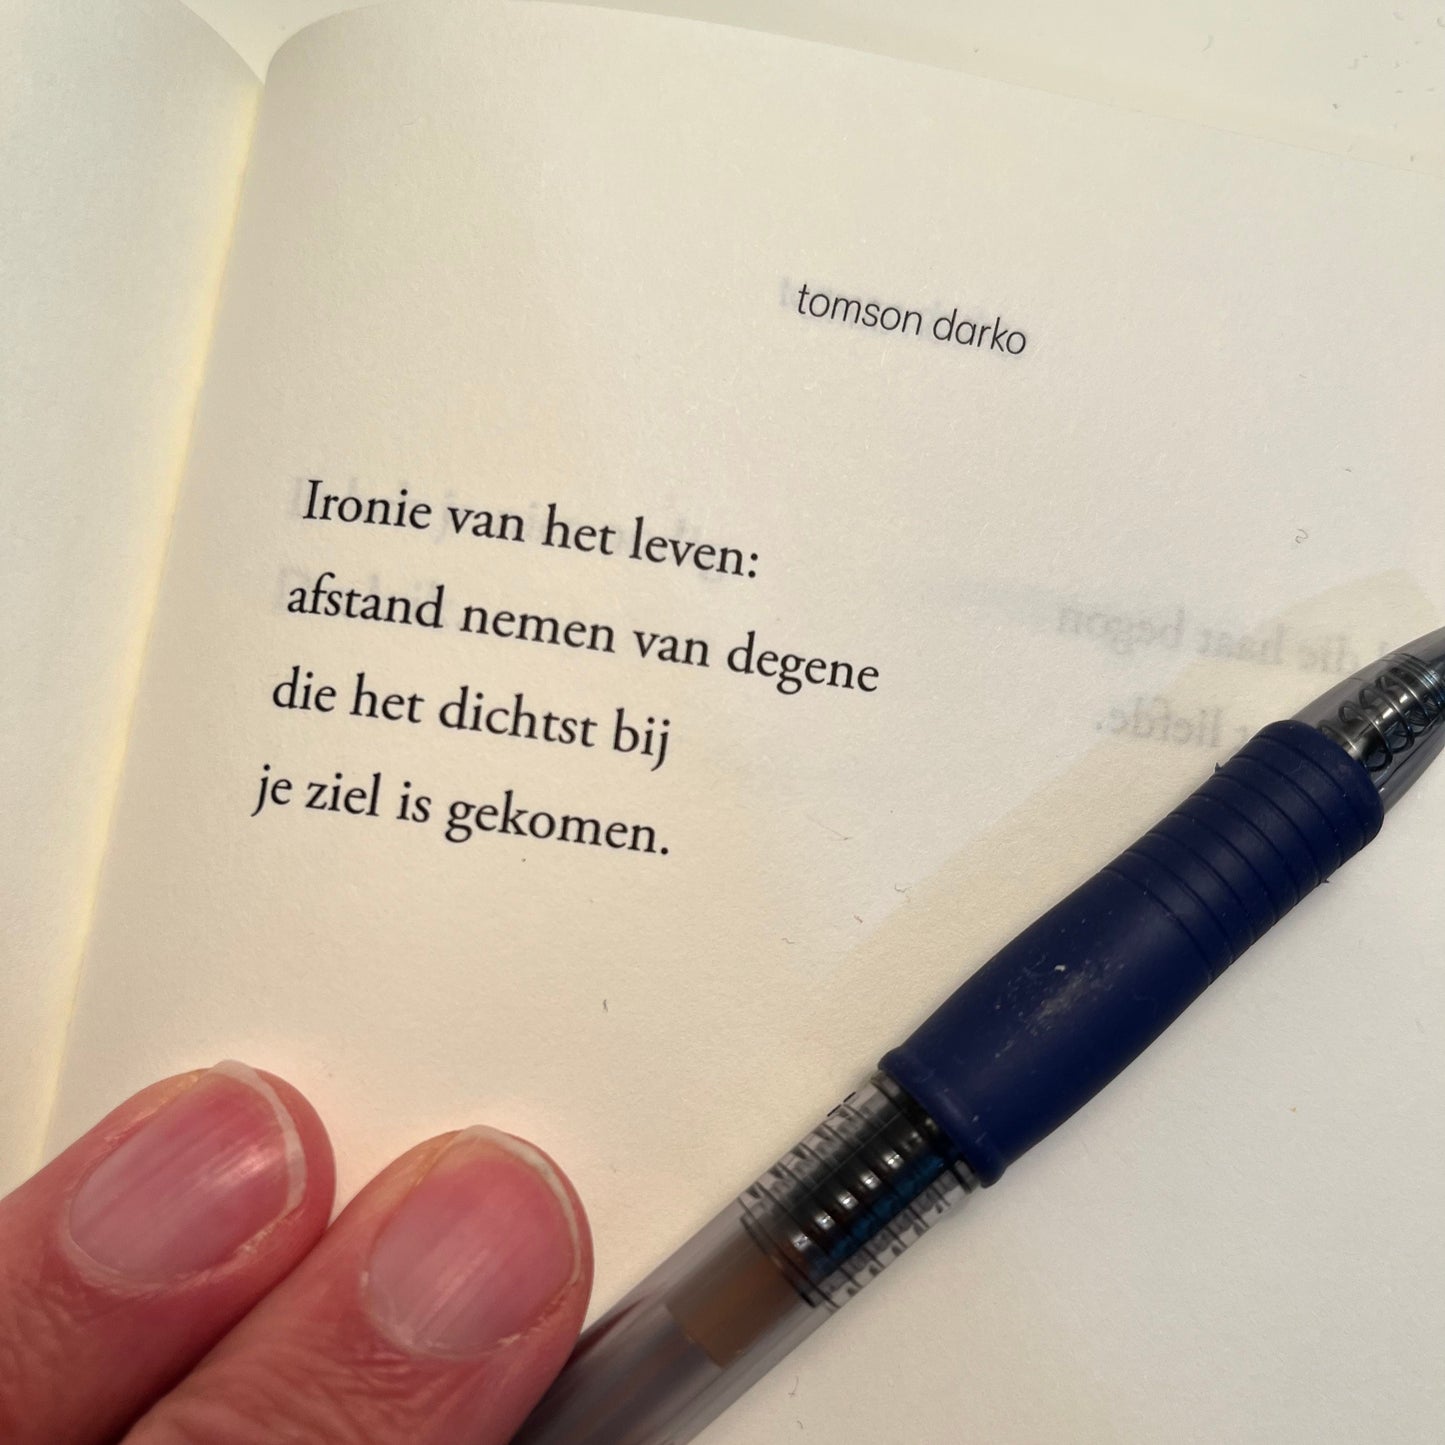 tomson darko
Ironie van het leven:
afstand nemen van degene
die het dichtst bij
je ziel is gekomen.
die haat begon
liefde.